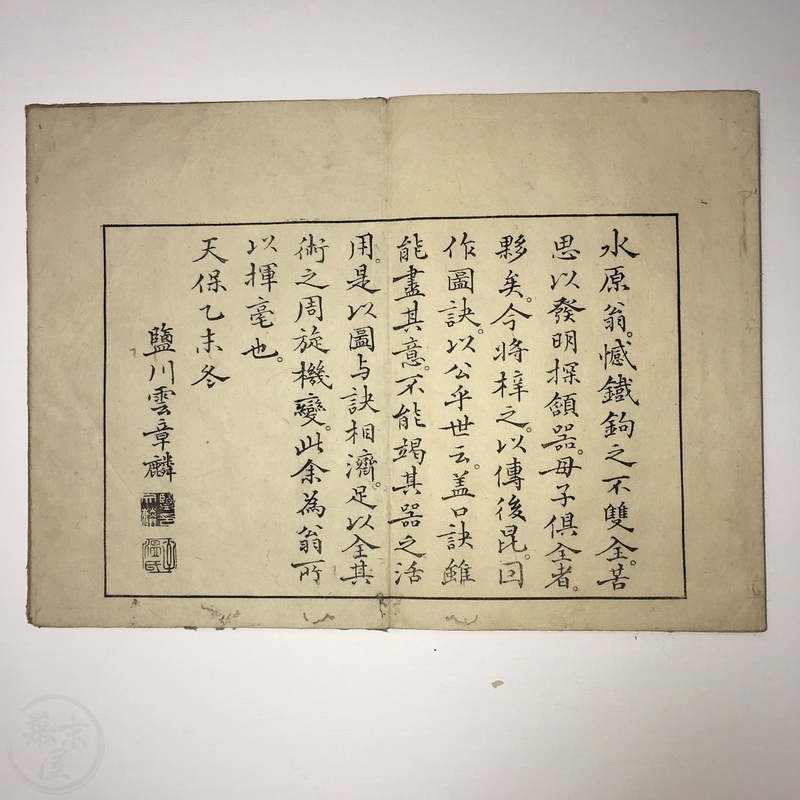 水原翁。憾鐵鉤之不雙全。苦
思以發明探頷器。母子俱全者。
夥矣。今將梓之。以傳後昆。囙
作圖訣。以公乎世云。盖口訣雖
能盡其意。不能竭其器之活
用。是以圖与訣相濟。足以全其
術之周旋機變。此余為翁所
以揮毫也。
天保乙未冬
鹽川雲章麟
幕末屋